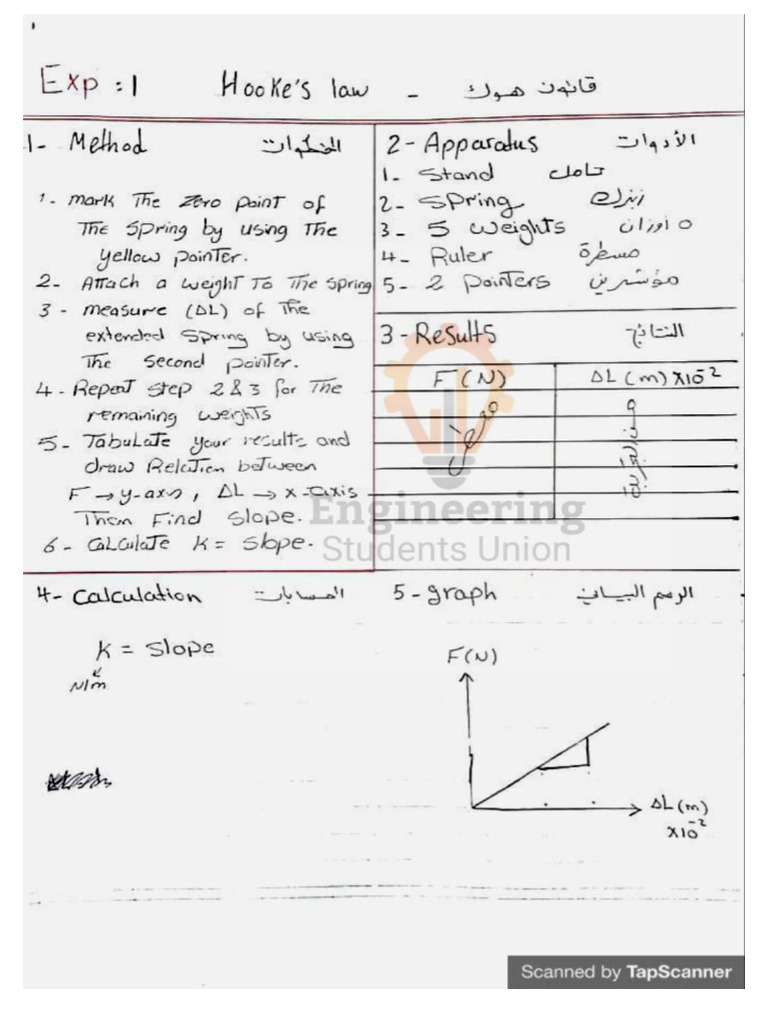 Exp : 1 Hooke's law - قانون هوك
1- Method الخطوات
1- mark The Zero point of
The spring by using The
yellow pointer.
2- Attach a weight To The spring
3- measure (ΔL) of The
extended spring by using
The second pointer.
4- Repeat step 2 & 3 for The
remaining weights
5- Tabulate your results and
draw Relation between
F → y-axis, ΔL → x-axis
Then Find slope.
6- calculate k = slope.
2- Apparatus الأدوات
1- Stand حامل
2- Spring زنبرك
3- 5 weights ٥ اوزان
4- Ruler مسطرة
5- 2 pointers مؤشرين
3- Results النتائج
F (N) ΔL (m) x10⁻²
Engineering
Students Union
4- Calculation الحسابات
k = slope
N/m
5- graph الرسم البياني
F(N)
ΔL (m)
x10⁻²
Scanned by TapScanner